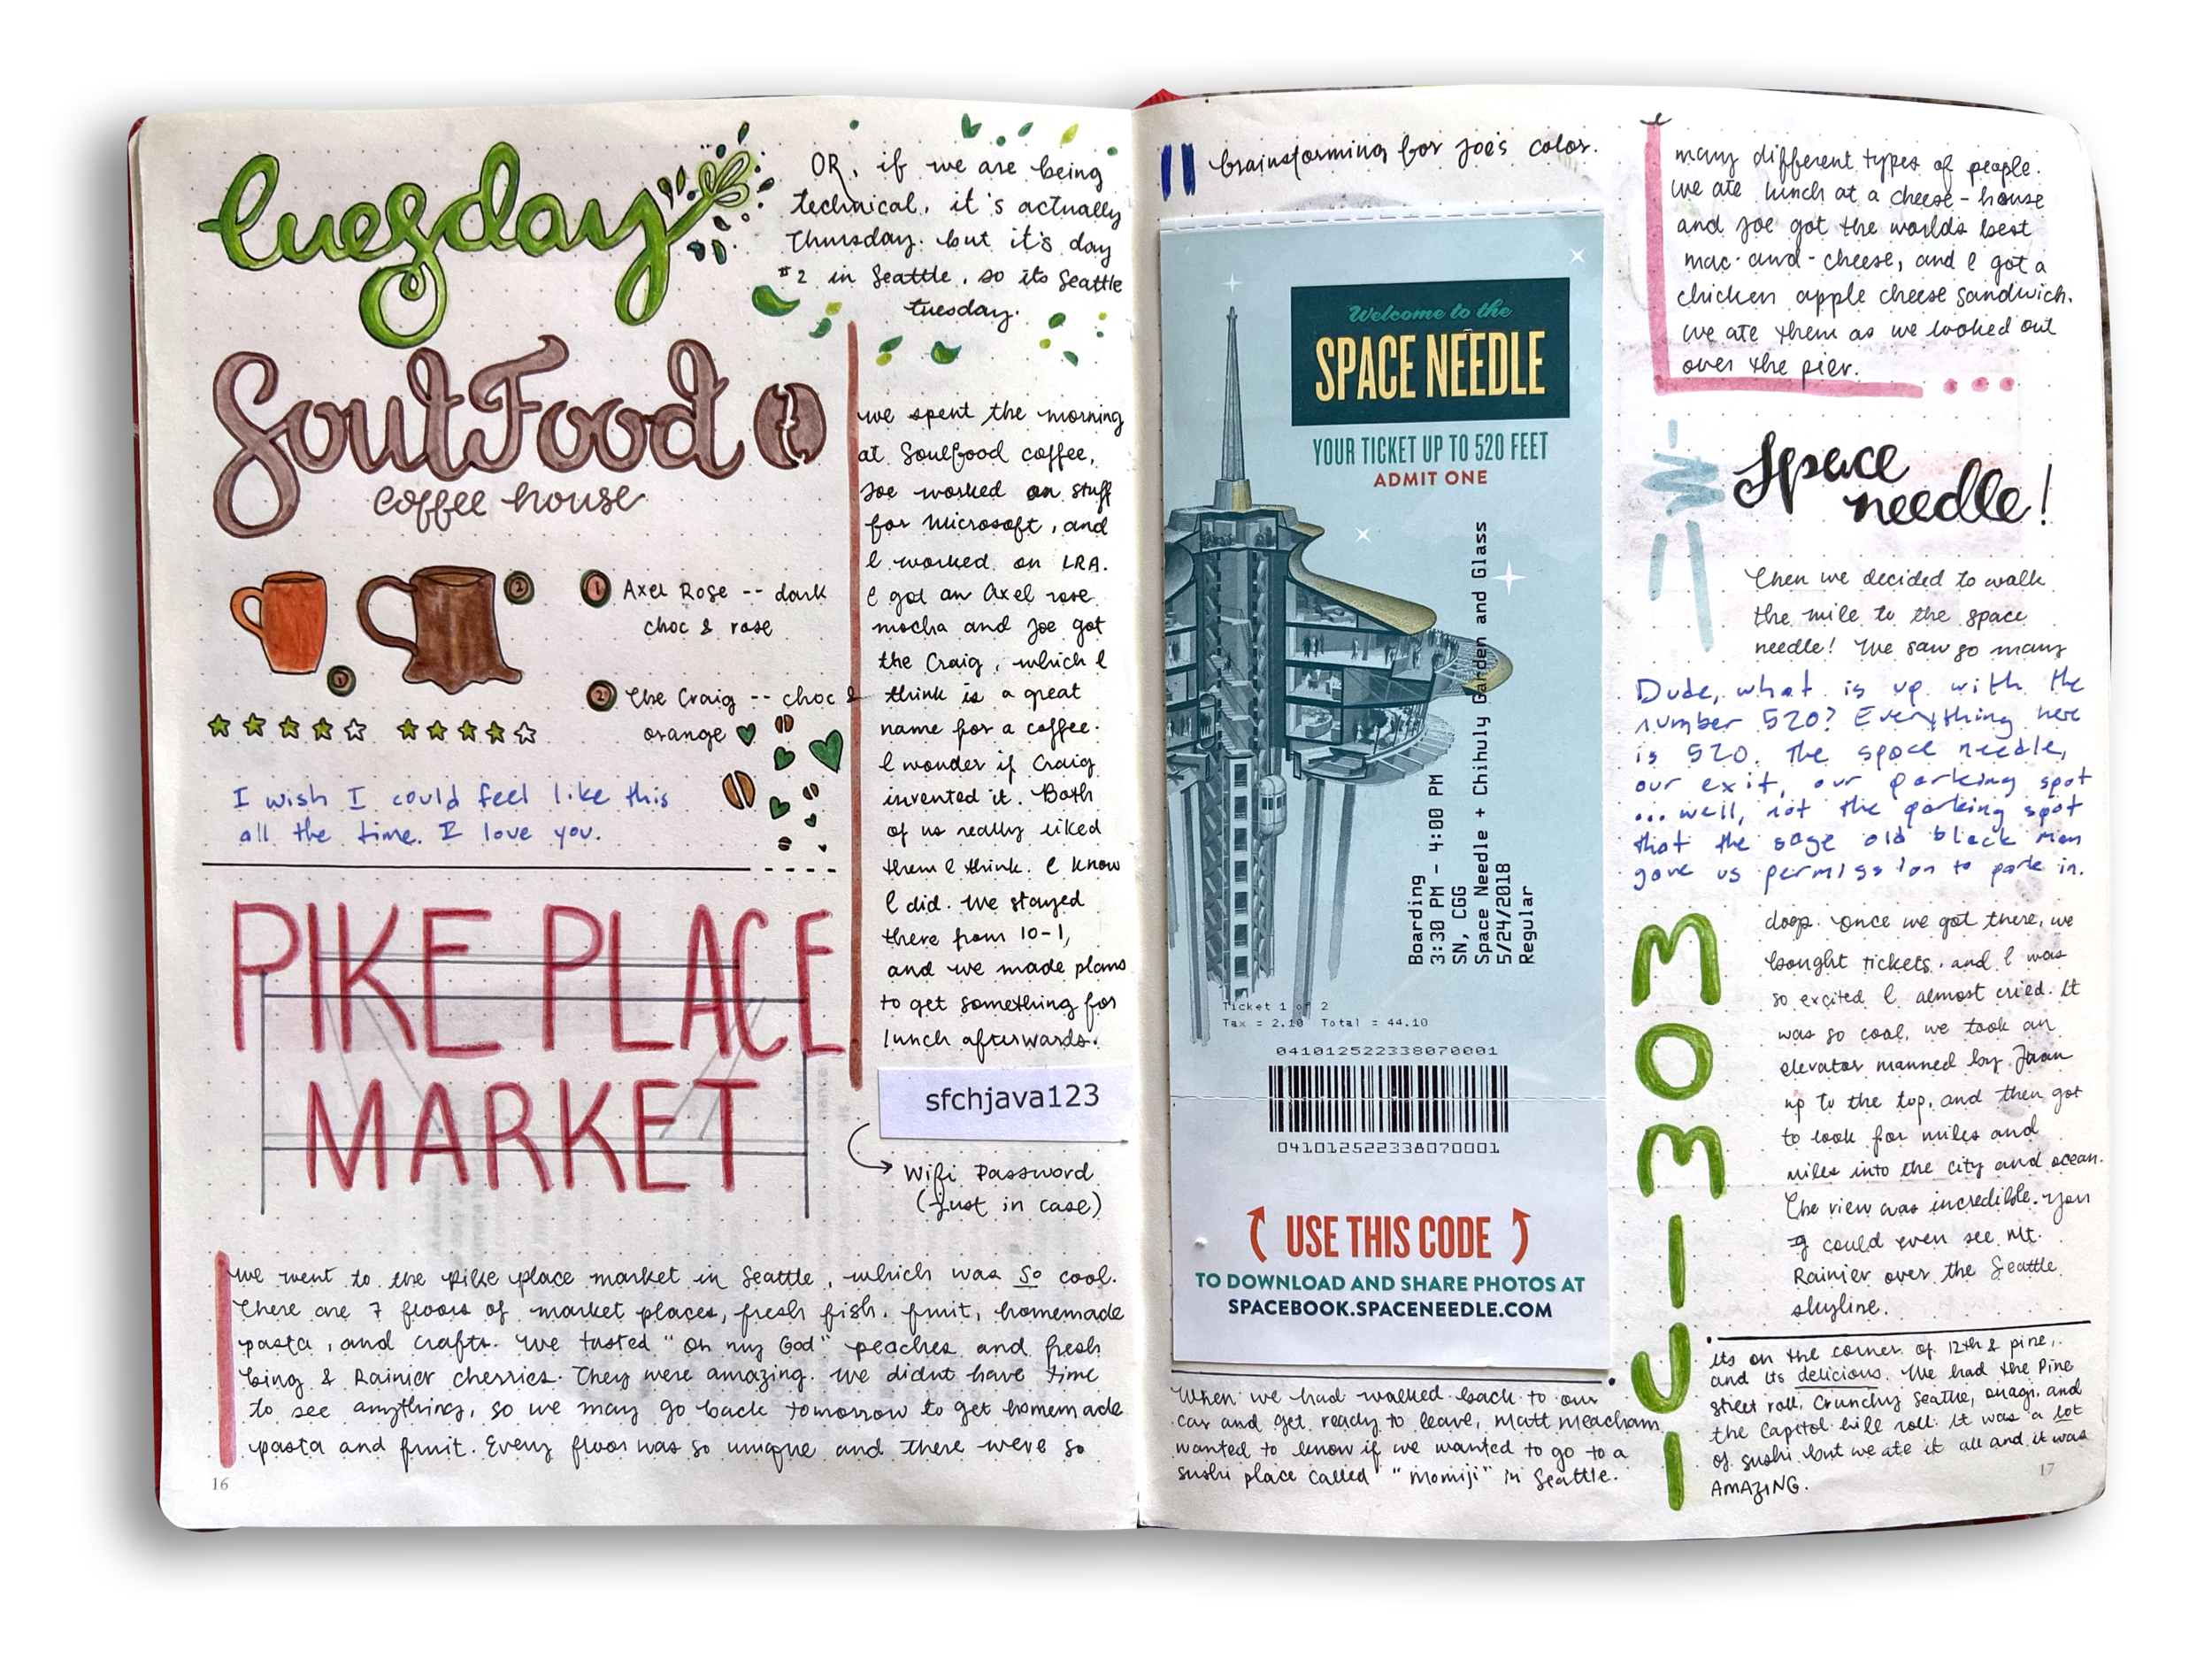 tuesday
OR, if we are being
technical, it's actually
Thursday. but it's day
#2 in Seattle, so its Seattle
tuesday.
SoulFood
coffee house
1 Axel Rose -- dark
choc & rose
2 The Craig -- choc &
orange
2
1
I wish I could feel like this
all the time. I love you.
we spent the morning
at Soulfood coffee,
Joe worked on stuff
for Microsoft, and
I worked on LRA.
I got an Axel rose
mocha and Joe got
the Craig, which I
think is a great
name for a coffee.
I wonder if Craig
invented it. Both
of us really liked
them I think. I know
I did. We stayed
there from 10-1,
and we made plans
to get something for
lunch afterwards.
sfchjava123
Wifi Password
(just in case)
PIKE PLACE
MARKET
we went to the Pike place market in Seattle, which was so cool.
There are 7 floors of market places, fresh fish, fruit, homemade
pasta, and crafts. We tasted "Oh my God" peaches and fresh
bing & Rainier cherries. They were amazing. we didnt have time
to see anything, so we may go back tomorrow to get homemade
pasta and fruit. Every floor was so unique and there were so
16
brainstorming for Joe's color.
Welcome to the
SPACE NEEDLE
YOUR TICKET UP TO 520 FEET
ADMIT ONE
Boarding
3:30 PM - 4:00 PM
SN, CGG
Space Needle + Chihuly Garden and Glass
5/24/2018
Regular
Ticket 1 of 2
Tax = 2.10 Total = 44.10
041012522338070001
041012522338070001
USE THIS CODE
TO DOWNLOAD AND SHARE PHOTOS AT
SPACEBOOK.SPACENEEDLE.COM
many different types of people.
we ate lunch at a cheese-house
and Joe got the worlds best
mac-and-cheese, and I got a
chicken apple cheese sandwich.
We ate them as we looked out
over the pier.
Space
needle!
Then we decided to walk
the mile to the space
needle! We saw so many
Dude, what is up with the
number 520? Everything here
is 520. The space needle,
our exit, our parking spot
... well, not the parking spot
that the sage old black man
gave us permission to park in.
dogs. Once we got there, we
bought tickets. and I was
so excited I almost cried. It
was so cool, we took an
elevator manned by Juan
up to the top, and then got
to look for miles and
miles into the city and ocean.
The view was incredible. You
could even see Mt.
Rainier over the Seattle
skyline.
MOMIJI
When we had walked back to our
car and get ready to leave, Matt Meacham
wanted to know if we wanted to go to a
sushi place called "Momiji" in Seattle.
its on the corner of 12th & pine,
and its delicious. We had the Pine
street roll, Crunchy Seattle, onagi, and
the Capitol hill roll. It was a lot
of sushi but we ate it all and it was
AMAZING.
17